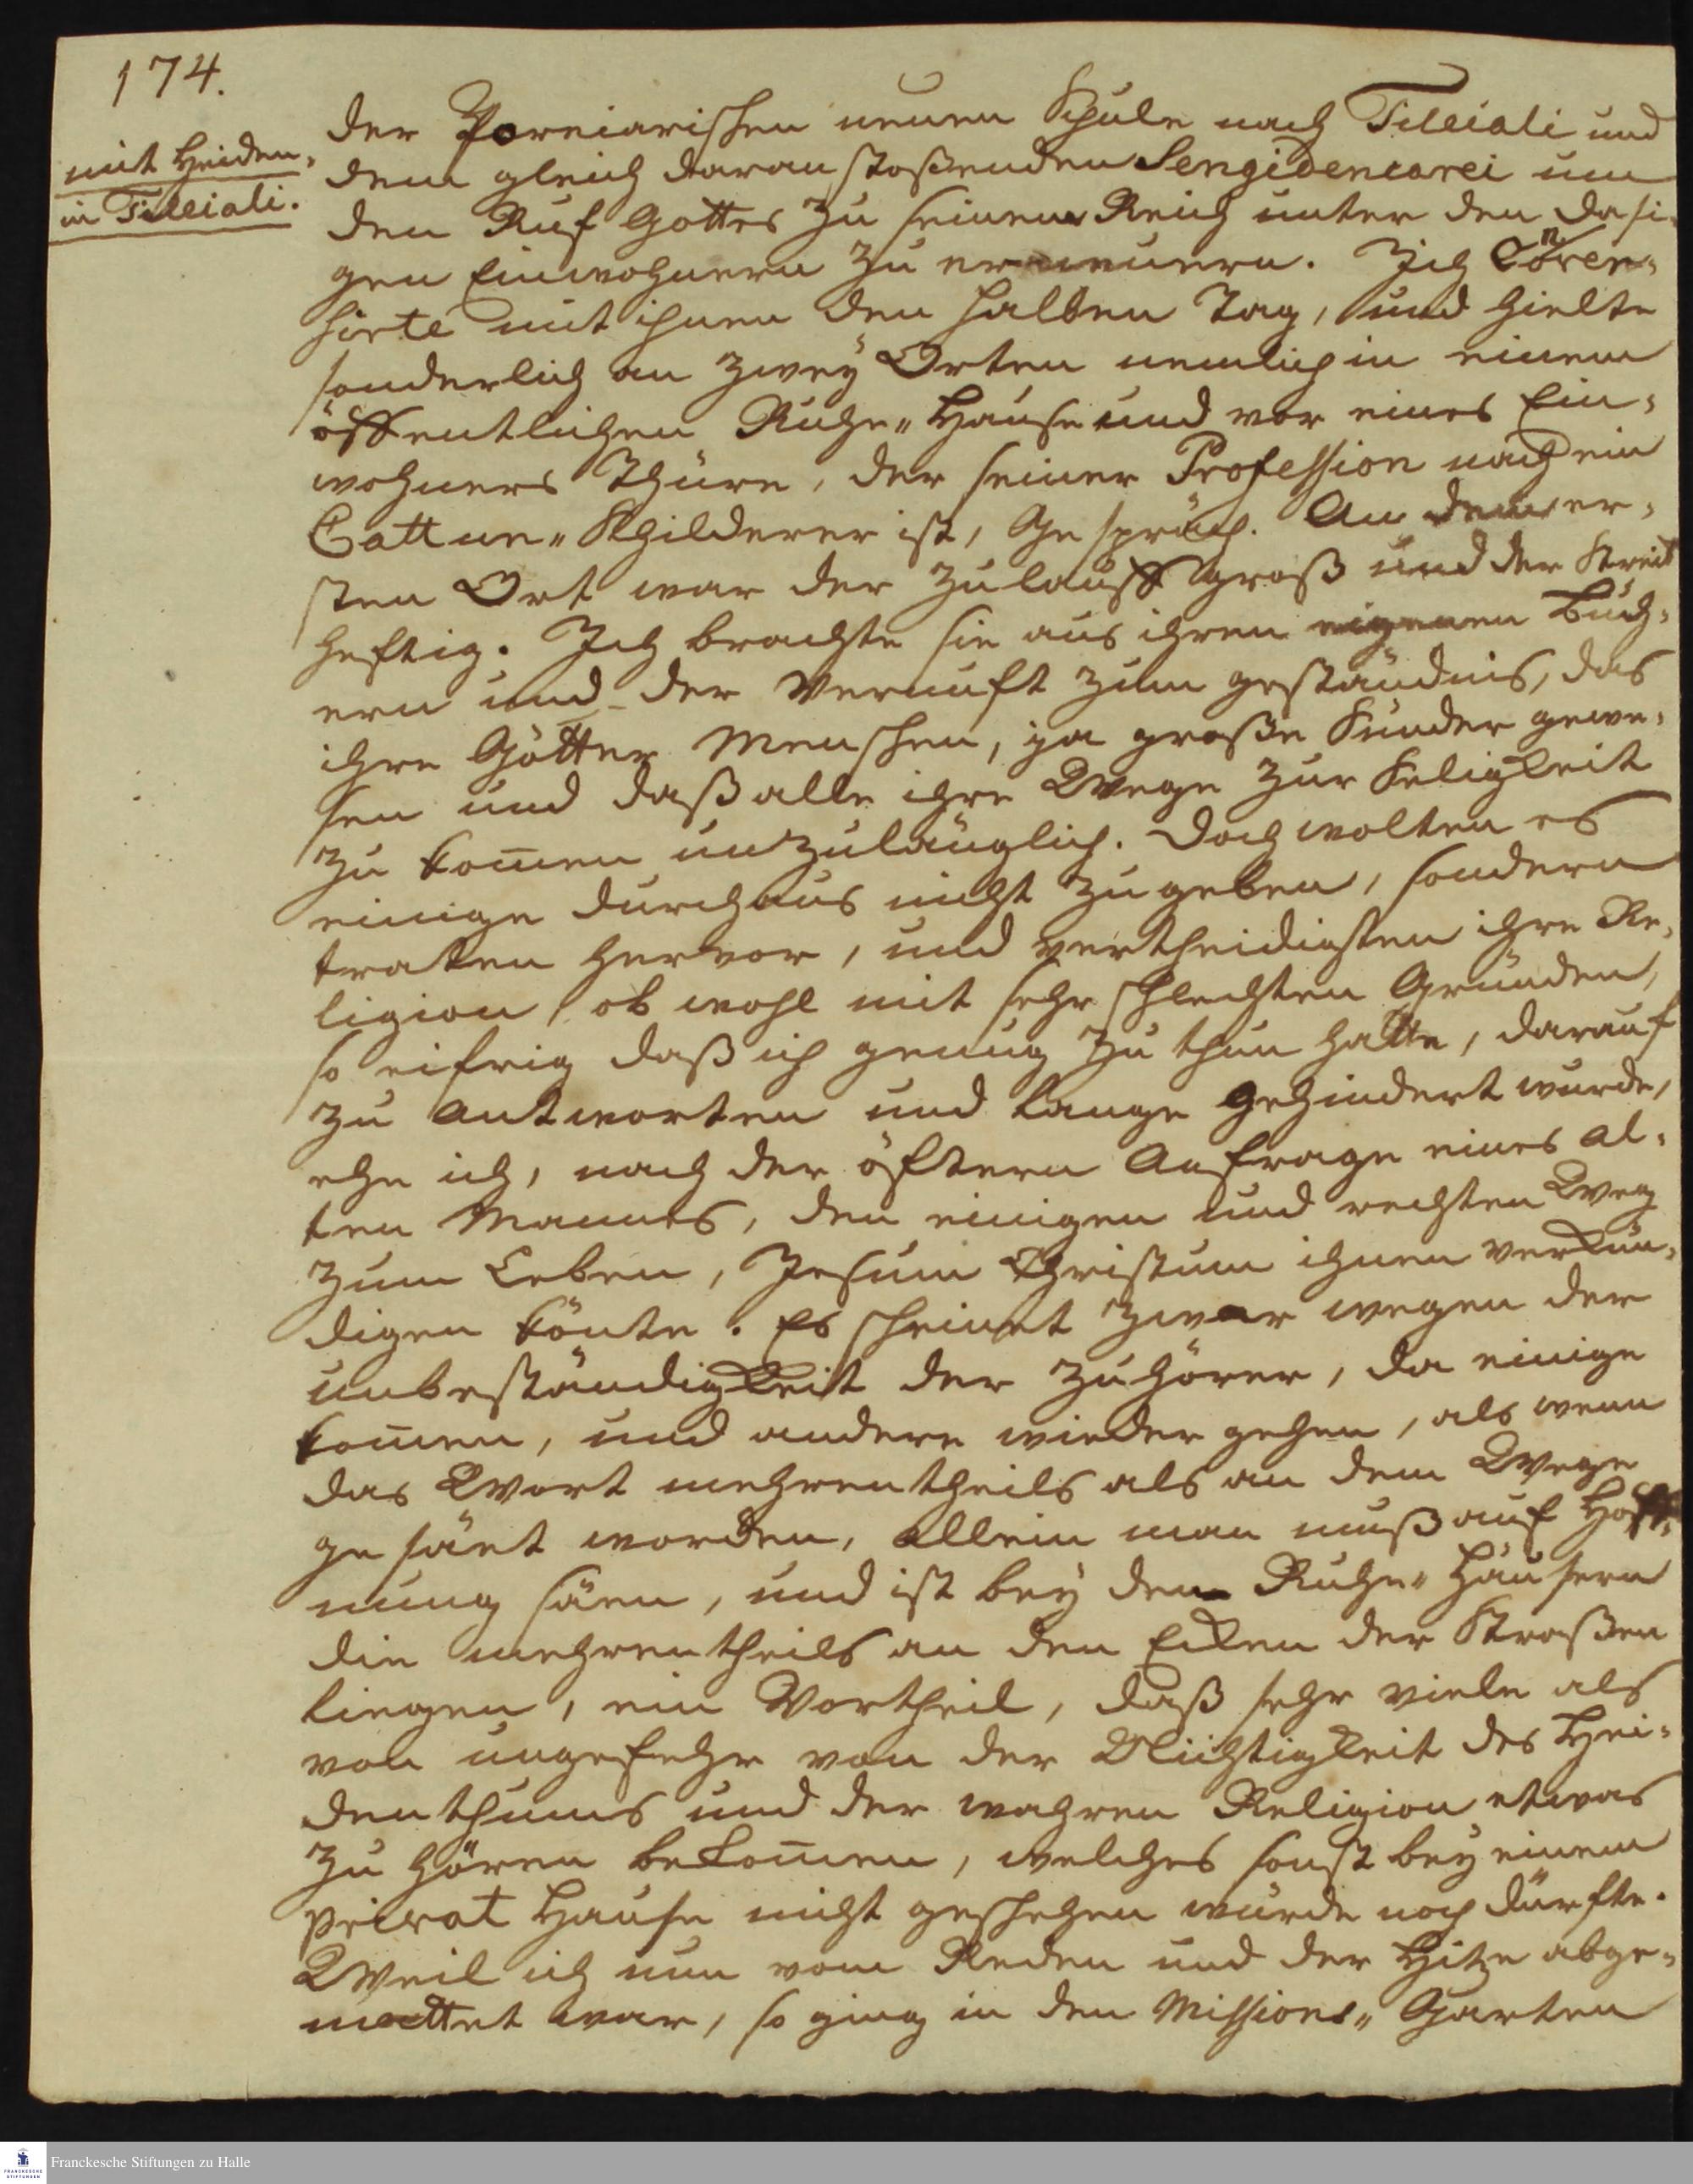 174.
mit Heiden,
in Tilleiali.
der Poreiarischen neuen Schule nach Tilleiali und
dem gleich daran stoßenden Sengidencarei um
den Ruf Gottes zu seinem Reich unter den dasi-
gen Einwohnern zu erneuern. Ich Conferi-
sirte mit ihnen den halben Tag, und hielte
sonderlich an zwey Orten nemlich in einem
öffentlichen Ruhe-Hause und vor eines Ein-
wohners Thüre, der seiner Profession nach ein
Cattun-Schilderer ist, Gespräch. An dem er-
sten Ort war der Zulauff groß und der Streit
heftig. Ich brachte sie aus ihren eigenen Büch-
ern und der Vernunft zum geständnis, das
ihre Götter Menschen, ja große Sünder gewe-
sen und daß alle ihre Wege zur Seligkeit
zu kom̄en unzulänglich. Doch wolten es
einige durchaus nicht zugeben, sondern
traten hervor, und vertheidigten ihre Re-
ligion, ob wohl mit sehr schlechten Gründen,
so eifrig daß ich genug zu thun hatte, darauf
zu antworten und lange gehindert wurde,
ehe ich, nach der öftern Anfrage eines al-
ten Mannes, den einigen und rechten Weg
zum Leben, Jesum Christum ihnen verkün-
digen könte. Es scheinet zwar wegen der
unbeständigkeit der Zuhörer, da einige
kom̄en, und andere wieder gehen, als wenn
das Wort mehrentheils als an dem Wege
gesäet worden, allein man muß auf Hoff-
nung säen, und ist bey den Ruhe-Häusern
die mehrentheils an den Ecken der Straßen
liegen, ein Vortheil, daß sehr viele als
von ungefehr von der Nichtigkeit des Hei-
denthums und der wahren Religion etwas
zu hören bekom̄en, welches sonst bey einem
privat Hause nicht geschehen würde noch dürfte.
Weil ich nun vom Reden und der Hitze abge-
mattet war, so ging in den Missions-Garten
Franckesche Stiftungen zu Halle
FRANCKESCHE
STIFTUNGEN